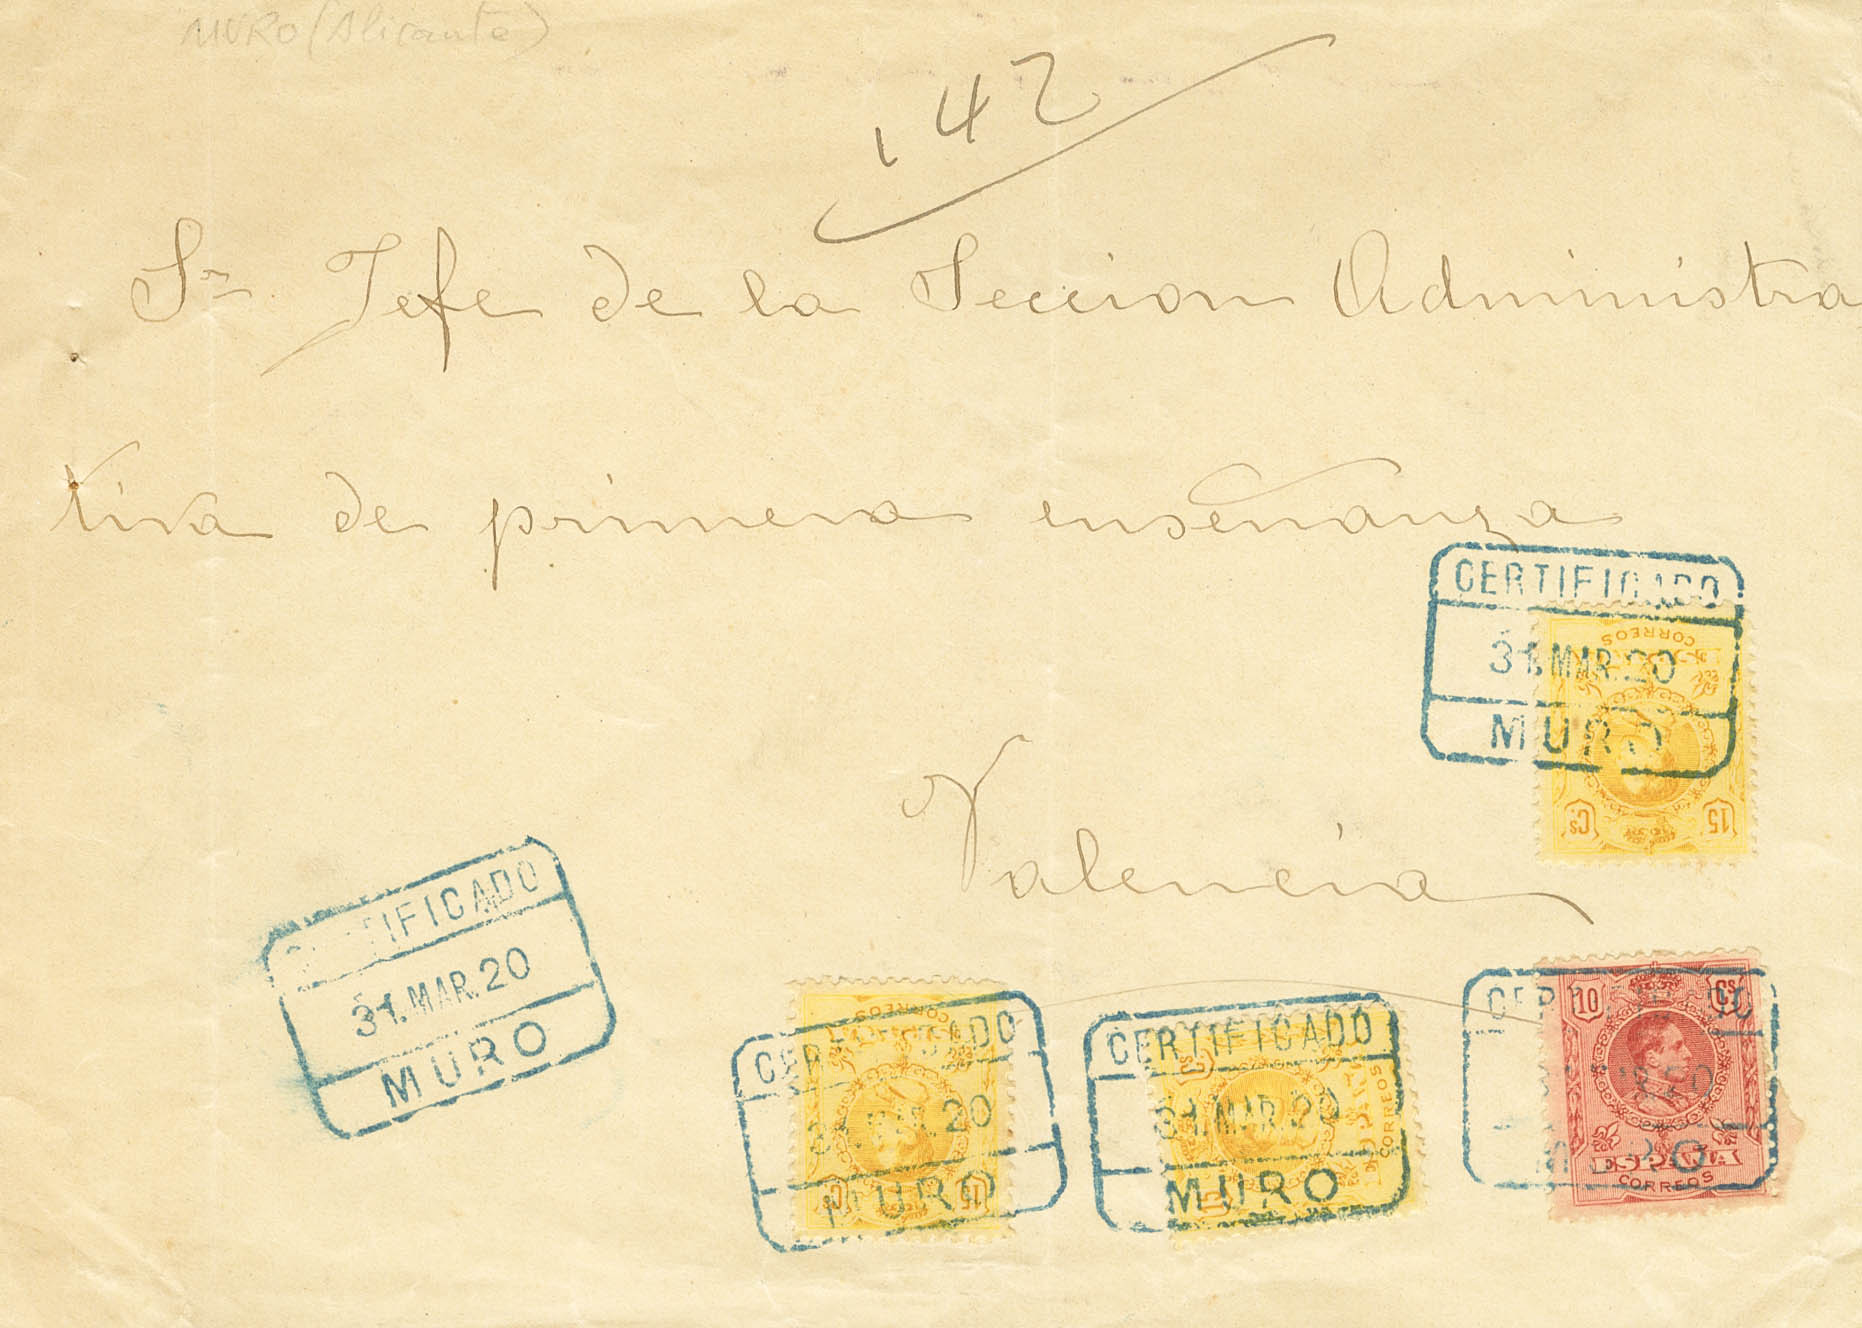 MURO (Alicante)
142
Sr Jefe de la Seccion Administra
tiva de primera enseñanza
CERTIFICADO
31.MAR.20
MURO
CORREOS
15 Cs
Valencia
CERTIFICADO
31.MAR.20
MURO
CERTIFICADO
31.MAR.20
MURO
CORREOS
15 Cs
CERTIFICADO
31.MAR.20
MURO
CORREOS
15 Cs
CERTIFICADO
31.MAR.20
MURO
10 Cs
ESPAÑA
CORREOS